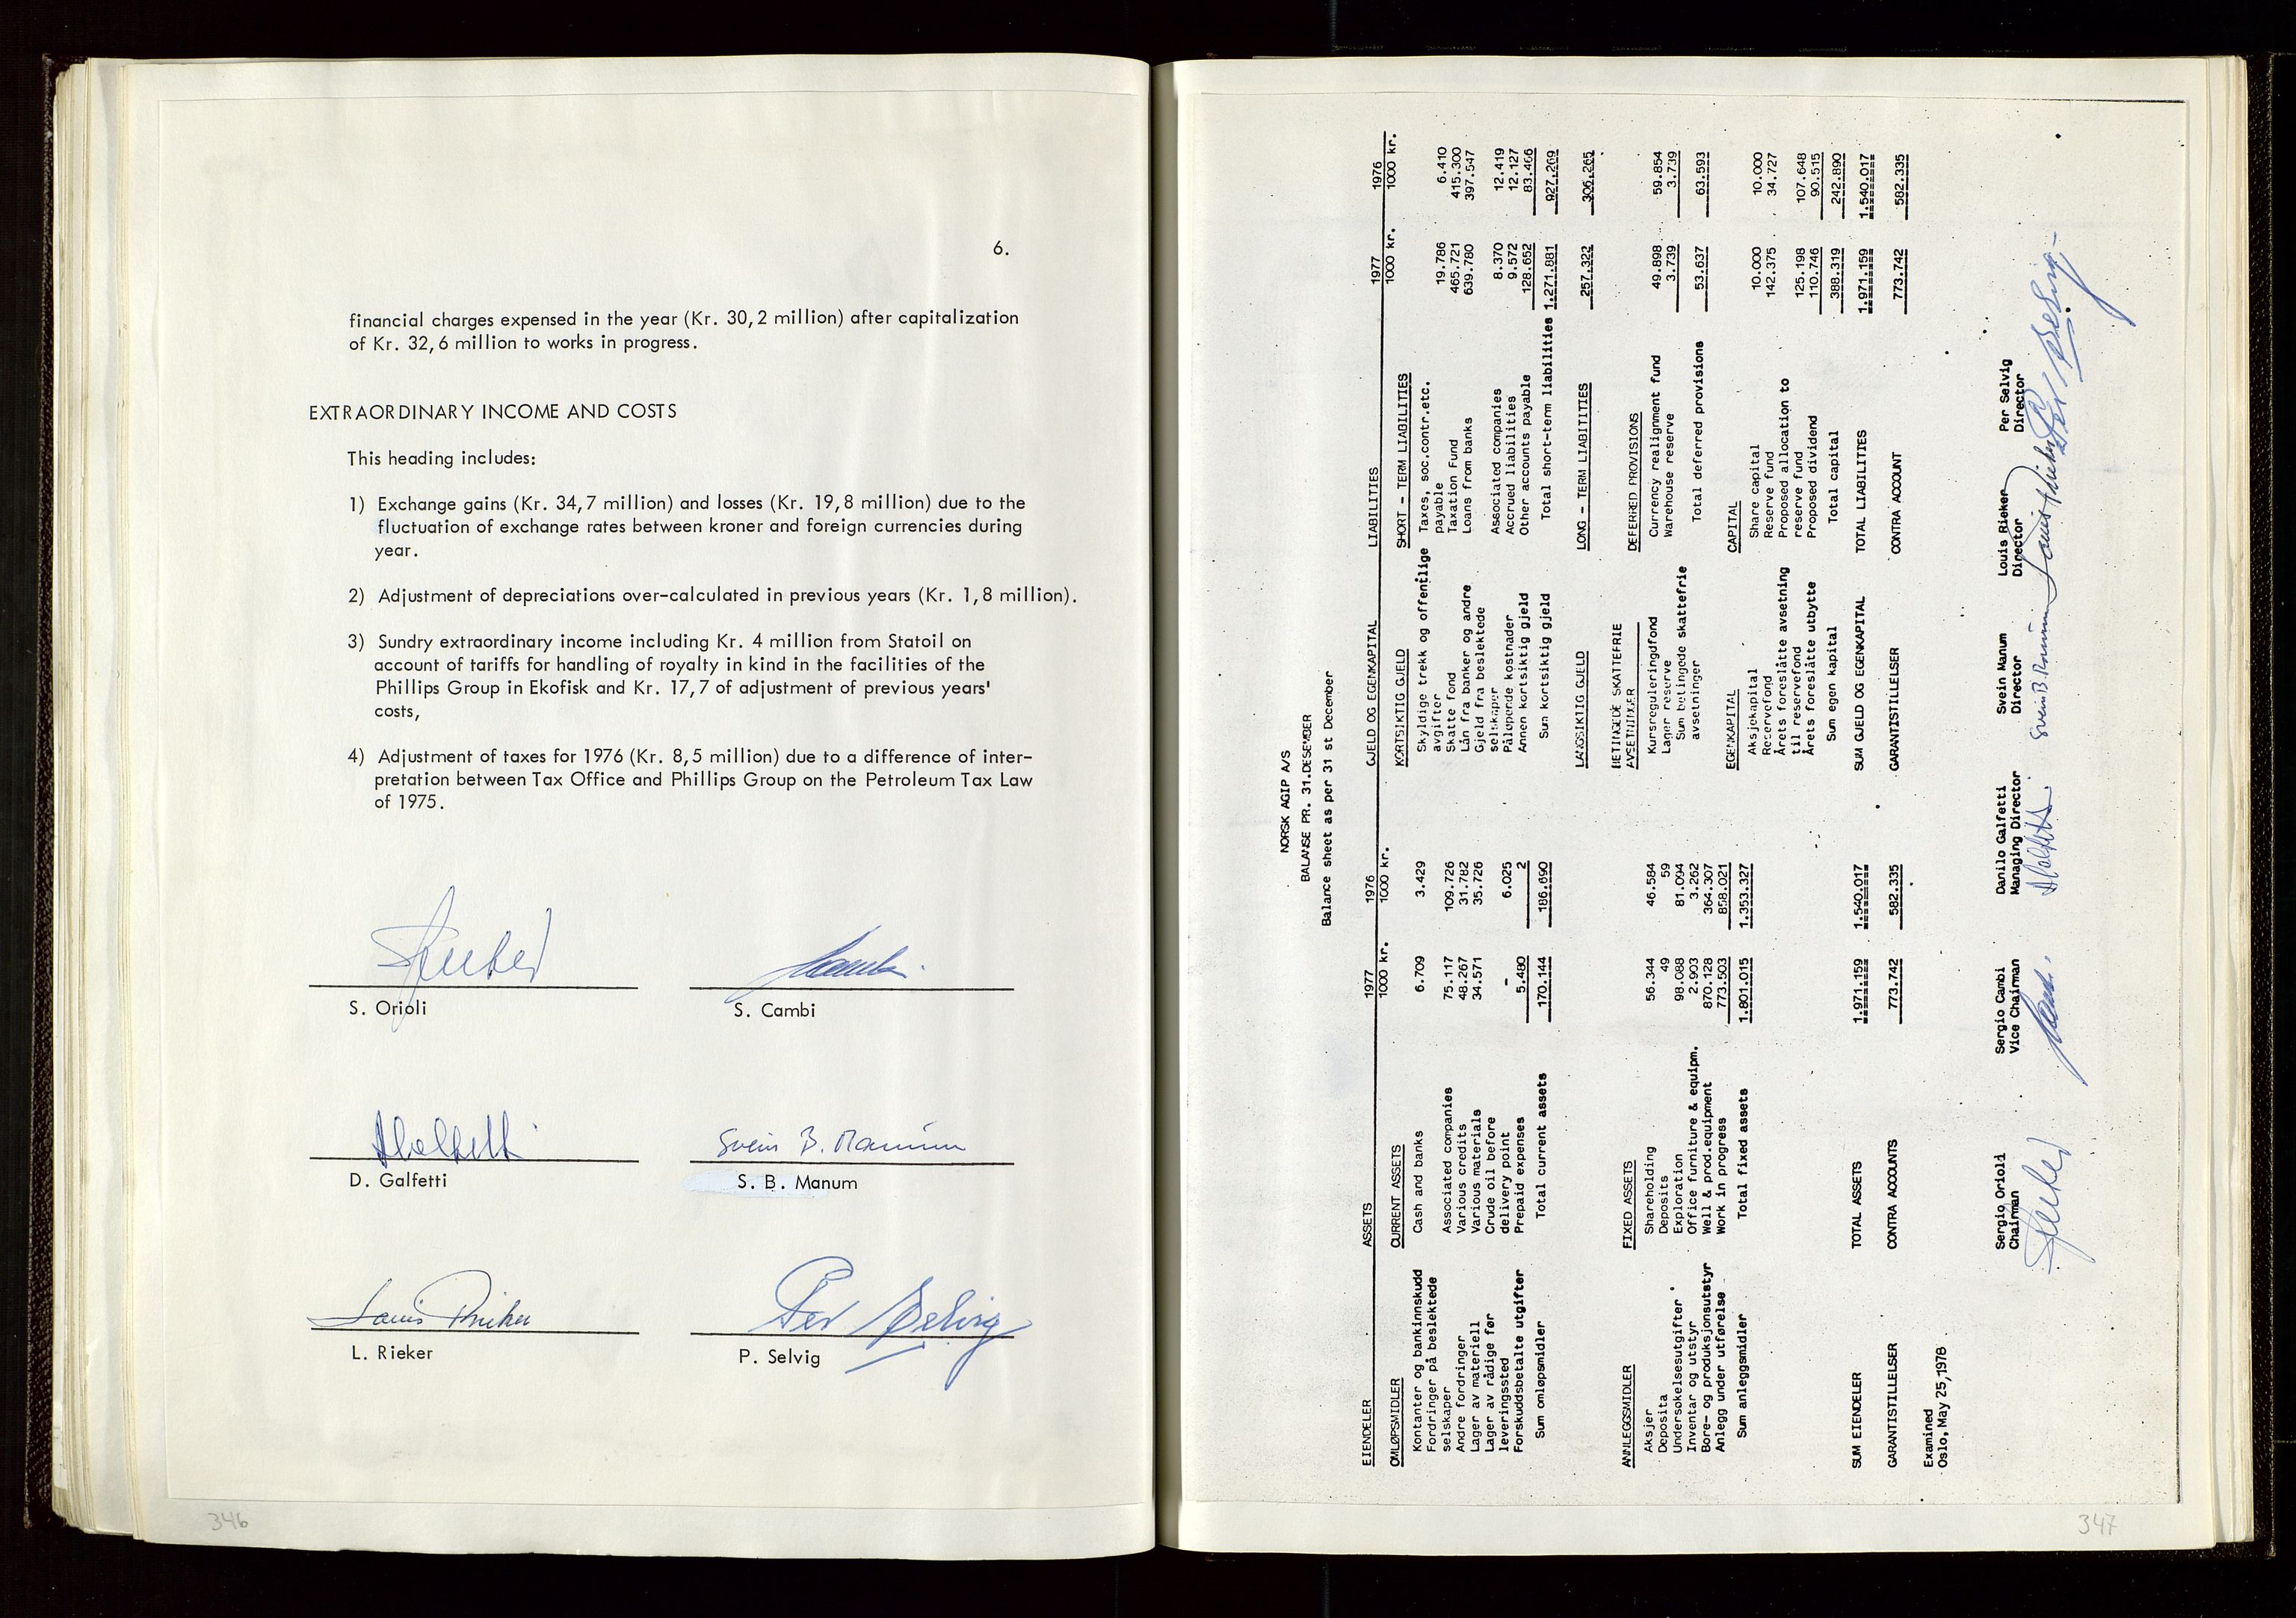 6.
financial charges expensed in the year (Kr. 30,2 million) after capitalization
of Kr. 32,6 million to works in progress.
EXTRAORDINARY INCOME AND COSTS
This heading includes:
1) Exchange gains (Kr. 34,7 million) and losses (Kr. 19,8 million) due to the
fluctuation of exchange rates between kroner and foreign currencies during
year.
2) Adjustment of depreciations over-calculated in previous years (Kr. 1,8 million).
3) Sundry extraordinary income including Kr. 4 million from Statoil on
account of tariffs for handling of royalty in kind in the facilities of the
Phillips Group in Ekofisk and Kr. 17,7 of adjustment of previous years'
costs,
4) Adjustment of taxes for 1976 (Kr. 8,5 million) due to a difference of inter-
pretation between Tax Office and Phillips Group on the Petroleum Tax Law
of 1975.
S. Orioli
S. Cambi
D. Galfetti
Svein B. Manum
S. B. Manum
Louis Rieker
L. Rieker
Per Selvig
P. Selvig
346
NORSK AGIP A/S
BALANSE PR. 31.DESEMBER
Balance sheet as per 31 st December
EIENDELER ASSETS 1977 1976
1000 kr. 1000 kr.
OMLØPSMIDLER CURRENT ASSETS
Kontanter og bankinnskudd Cash and banks 6.709 3.429
Fordringer på beslektede
selskaper Associated companies 75.117 109.726
Andre fordringer Various credits 48.267 31.782
Lager av materiell Various materials 34.571 35.726
Lager av rådige før Crude oil before
leveringssted delivery point - 6.025
Forskuddsbetalte utgifter Prepaid expenses 5.480 2
Sum omløpsmidler Total current assets 170.144 186.690
ANNLEGGSMIDLER FIXED ASSETS
Aksjer Shareholding 56.344 46.584
Deposita Deposits 49 59
Undersøkelsesutgifter Exploration 98.088 81.094
Inventar og utstyr Office furniture & equipm. 2.903 3.262
Bore- og produksjonsutstyr Well & prod.equipment 870.128 364.307
Anlegg under utførelse Work in progress 773.503 858.021
Sum anleggsmidler Total fixed assets 1.801.015 1.353.327
SUM EIENDELER TOTAL ASSETS 1.971.159 1.540.017
GARANTISTILLELSER CONTRA ACCOUNTS 773.742 582.335
GJELD OG EGENKAPITAL LIABILITIES 1977 1976
1000 kr. 1000 kr.
KORTSIKTIG GJELD SHORT - TERM LIABILITIES
Skyldige trekk og offentlige Taxes, soc.contr.etc.
avgifter payable 19.786 6.410
Skatte fond Taxation Fund 465.721 415.300
Lån fra banker og andre Loans from banks 639.780 397.547
Gjeld fra beslektede
selskaper Associated companies 8.370 12.419
Påløpende kostnader Accrued liabilities 9.572 12.127
Annen kortsiktig gjeld Other accounts payable 128.652 83.466
Sum kortsiktig gjeld Total short-term liabilities 1.271.881 927.269
LANGSIKTIG GJELD LONG - TERM LIABITIES 257.322 306.265
BETINGEDE SKATTEFRIE
AVSETNINGER DEFERRED PROVISIONS
Kursreguleringdfond Currency realignment fund 49.898 59.854
Lager reserve Warehouse reserve 3.739 3.739
Sum betingede skattefrie
avsetninger Total deferred provisions 53.637 63.593
EGENKAPITAL CAPITAL
Aksjekapital Share capital 10.000 10.000
Reservefond Reserve fund 142.375 34.727
Årets foreslåtte avsetning Proposed allocation to
til reservefond reserve fund 125.198 107.648
Årets foreslåtte utbytte Proposed dividend 110.746 90.515
Sum egen kapital Total capital 388.319 242.890
SUM GJELD OG EGENKAPITAL TOTAL LIABILITIES 1.971.159 1.540.017
GARANTISTILLELSER CONTRA ACCOUNT 773.742 582.335
Examined
Oslo, May 25,1978
Sergio Orioli Sergio Cambi Danilo Galfetti Svein Manum Louis Rieker Per Selvig
Chairman Vice Chairman Managing Director Director Director Director
Svein B. Manum Louis Rieker Per Selvig
347